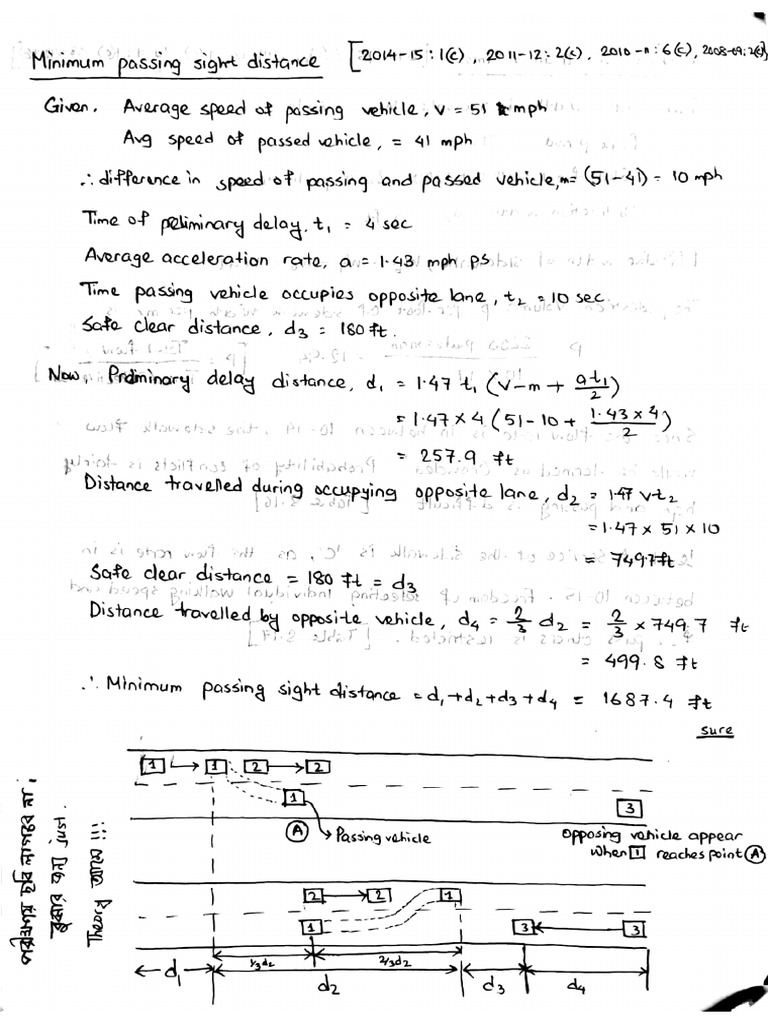 Minimum passing sight distance [2014-15: 1(c), 2011-12: 2(c), 2010-11: 6(c), 2008-09: 2(c)]
Given. Average speed of passing vehicle, v = 51 mph
Avg speed of passed vehicle, = 41 mph
∴ difference in speed of passing and passed vehicle, m = (51-41) = 10 mph
Time of preliminary delay, t₁ = 4 sec
Average acceleration rate, a = 1.43 mph ps
Time passing vehicle occupies opposite lane, t₂ = 10 sec
Safe clear distance, d₃ = 180 ft.
Now, Preliminary delay distance, d₁ = 1.47 t₁ (v-m + at₁/2)
= 1.47 x 4 (51-10 + 1.43 x 4/2)
= 257.9 ft
Distance travelled during occupying opposite lane, d₂ = 1.47 vt₂
= 1.47 x 51 x 10
= 749.7 ft
Safe clear distance = 180 ft = d₃
Distance travelled by opposite vehicle, d₄ = 2/3 d₂ = 2/3 x 749.7 ft
= 499.8 ft
∴ Minimum passing sight distance = d₁+d₂+d₃+d₄ = 1687.4 ft
sure
1 1 2 2
1 3
A Passing vehicle
Opposing vehicle appear
when 1 reaches point A
2 2 1
1 3 3
1/3d₂ 2/3d₂
d₁ d₂ d₃ d₄
পরীক্ষায় ছবি লাগবে না।
just
Theory আসে !!!